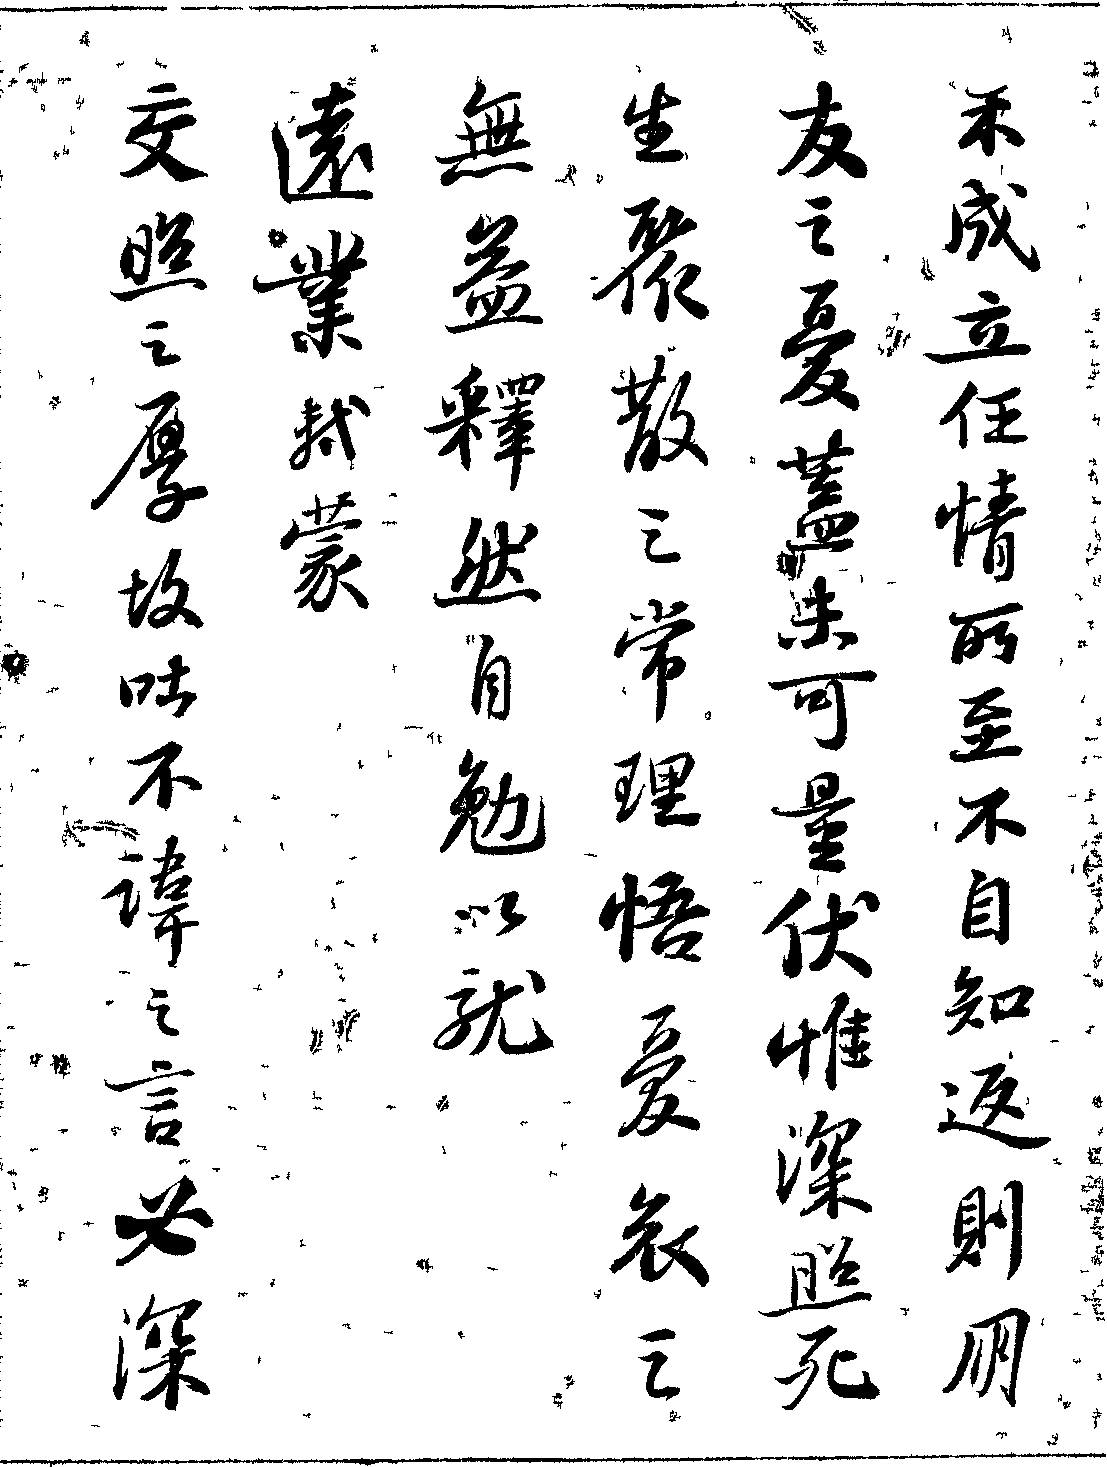 不成立任情所至不自知返則朋
友之憂蓋未可量伏惟深照死
生聚散之常理悟憂哀之
無益釋然自勉以就
遠業軾蒙
交照之厚故吐不諱之言必深